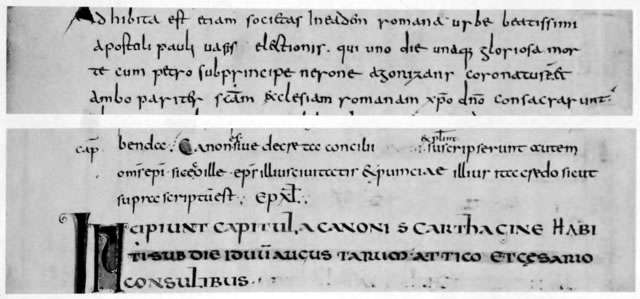 Adhibita est etiam societas ineadem romana urbe beatissimi
apostoli pauli uasis electionis. qui uno die unaque gloriosa mor
te cum petro subprincipe nerone agonizans coronatus est
ambo pariter scam ecclesiam romanam xpo dno consacrarunt
cap bendae. Canones siue decreta concilii expliciunt suscripserunt autem
omnes epi. sic et ille. epi illius ciuitatis et prouinciae illius ita credo sicut
supra scriptum est. EPXL.
INCIPIUNT CAPITUL, A CANONIS CARTHAGINE HABI
TI SUB DIE IDUUM AUGUSTARUM ATTICO ET CESARIO
CONSULIBUS.